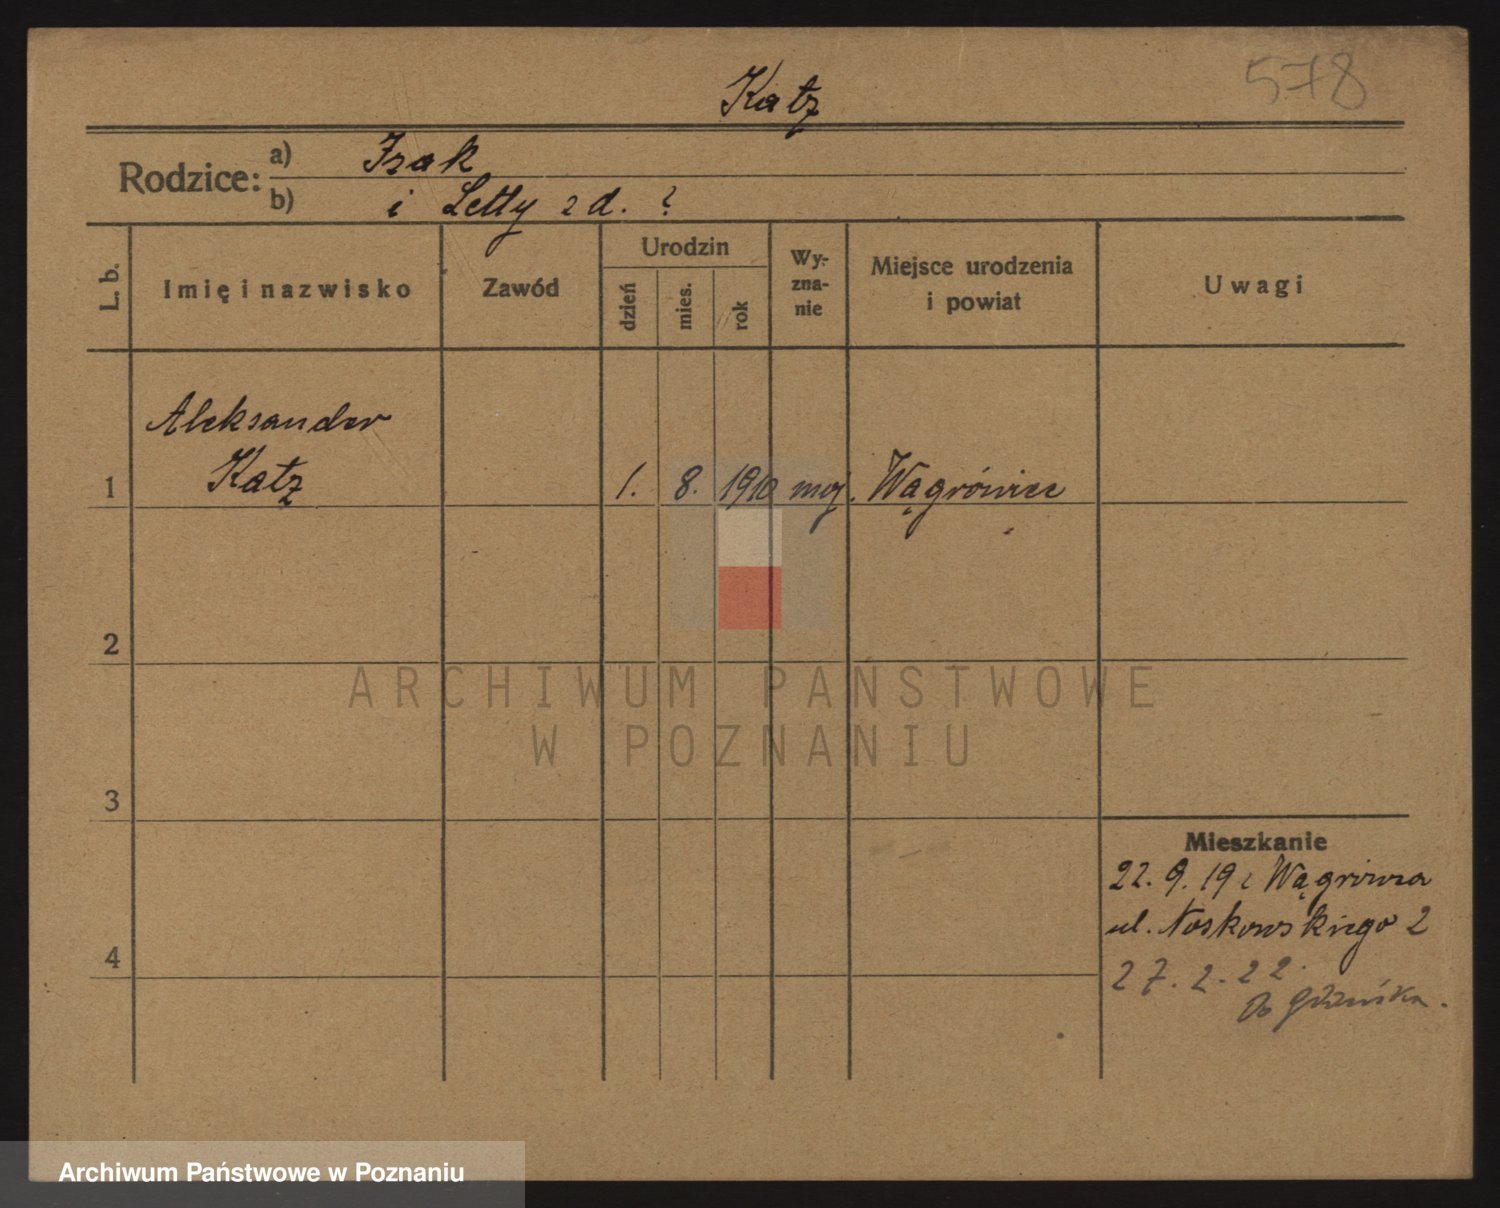 578
Katz
Rodzice:
a) Izak
b) i Letty z d. ?
L. b.
Imię i nazwisko
Zawód
Urodzin
dzień
mies.
rok
Wy-
zna-
nie
Miejsce urodzenia
i powiat
Uwagi
Aleksander
1 Katz 1. 8. 1910 moj. Wągrówiec
2
3
4
Mieszkanie
22. 9. 19 z Wągrówca
ul. Noskowskiego 2
27. 2. 22.
Do Gdańska.
ARCHIWUM PAŃSTWOWE
W POZNANIU
Archiwum Państwowe w Poznaniu